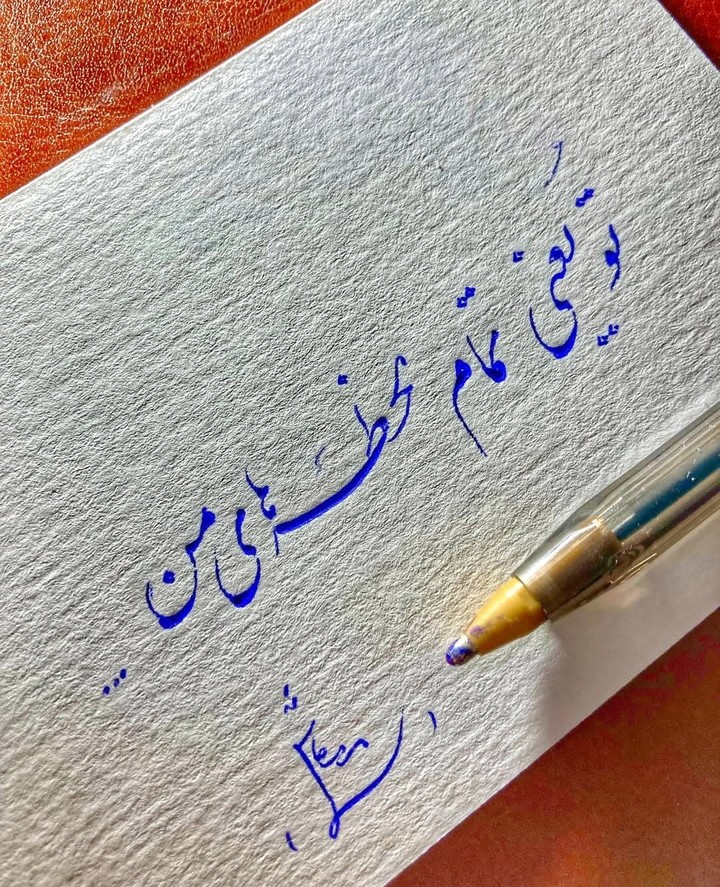 تو یعنی تمام لحظه‌های من ...